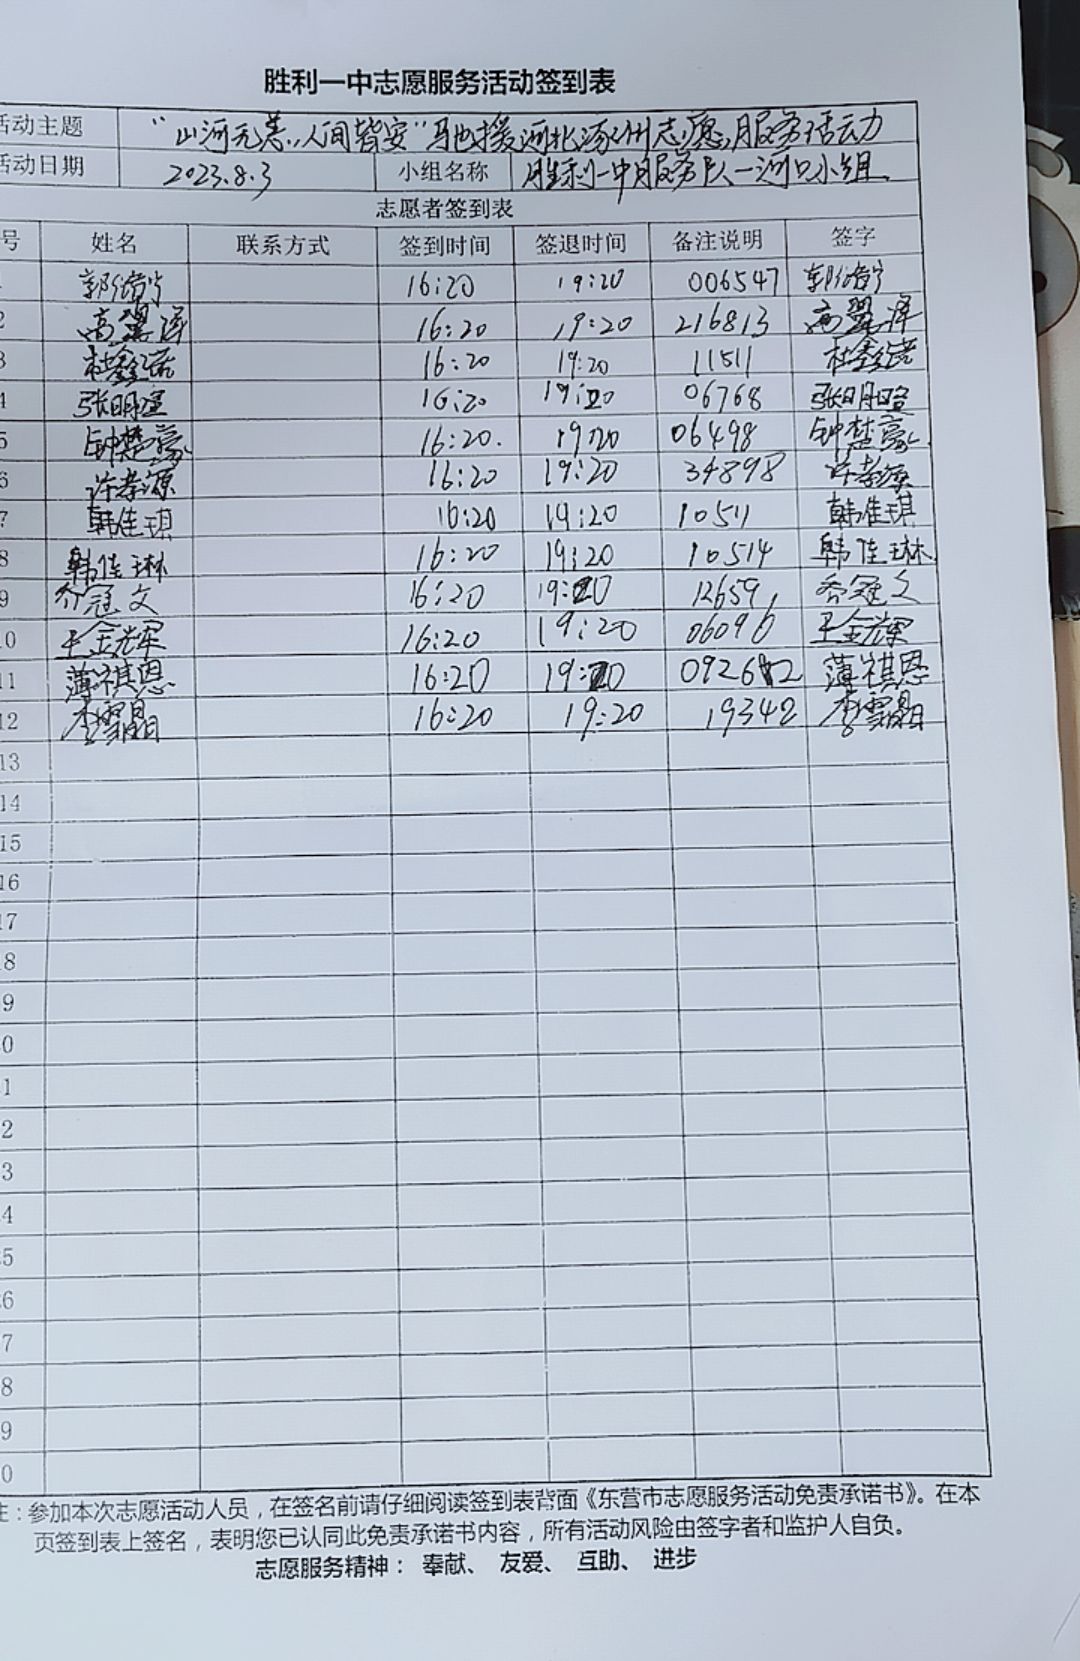 胜利一中志愿服务活动签到表
活动主题 “山河无恙,人间皆安”驰援河北涿州志愿服务活动
活动日期 2023.8.3 小组名称 胜利一中服务队一河口小组
志愿者签到表
号 姓名 联系方式 签到时间 签退时间 备注说明 签字
16:20 19:20 006547
2 高翌泽 16:20 19:20 216813 高翌泽
3 杜鑫诺 16:20 19:20 11511 杜鑫诺
4 张明暄 16:20 19:20 06768 张明暄
5 钟楚豪 16:20. 19:20 06498 钟楚豪
6 许孝源 16:20 19:20 34898 许孝源
7 韩佳琪 16:20 19:20 10511 韩佳琪
8 韩佳琳 16:20 19:20 10514 韩佳琳
9 乔冠文 16:20 19:20 12659 乔冠文
10 王金辉 16:20 19:20 06096 王金辉
11 薄祺恩 16:20 19:20 薄祺恩
12 李雪晶 16:20 19:20 19342 李雪晶
13
14
15
16
17
8
9
0
1
2
3
4
5
6
7
8
9
0
注：参加本次志愿活动人员，在签名前请仔细阅读签到表背面《东营市志愿服务活动免责承诺书》。在本
页签到表上签名，表明您已认同此免责承诺书内容，所有活动风险由签字者和监护人自负。
志愿服务精神： 奉献、 友爱、 互助、 进步